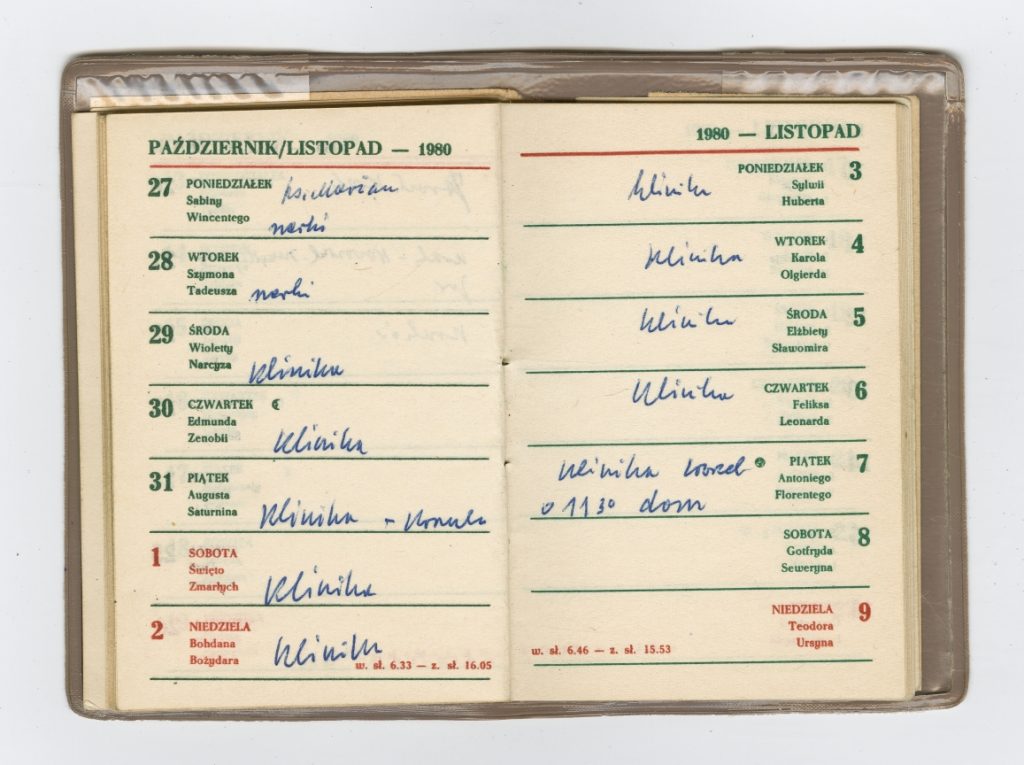 PAŹDZIERNIK/LISTOPAD — 1980
27 PONIEDZIAŁEK ks. Marian
Sabiny
Wincentego nerki
28 WTOREK
Szymona
Tadeusza nerki
29 ŚRODA
Wioletty
Narcyza Klinika
30 CZWARTEK
Edmunda
Zenobii Klinika
31 PIĄTEK
Augusta
Saturnina Klinika -
1 SOBOTA
Święto
Zmarłych Klinika
2 NIEDZIELA
Bohdana
Bożydara Klinika
w. sł. 6.33 — z. sł. 16.05
1980 — LISTOPAD
Klinika PONIEDZIAŁEK 3
Sylwii
Huberta
Klinika WTOREK 4
Karola
Olgierda
Klinika ŚRODA 5
Elżbiety
Sławomira
Klinika CZWARTEK 6
Feliksa
Leonarda
Klinika PIĄTEK 7
Antoniego
o 11 30 dom Florentego
SOBOTA 8
Gotfryda
Seweryna
NIEDZIELA 9
Teodora
Ursyna
w. sł. 6.46 — z. sł. 15.53